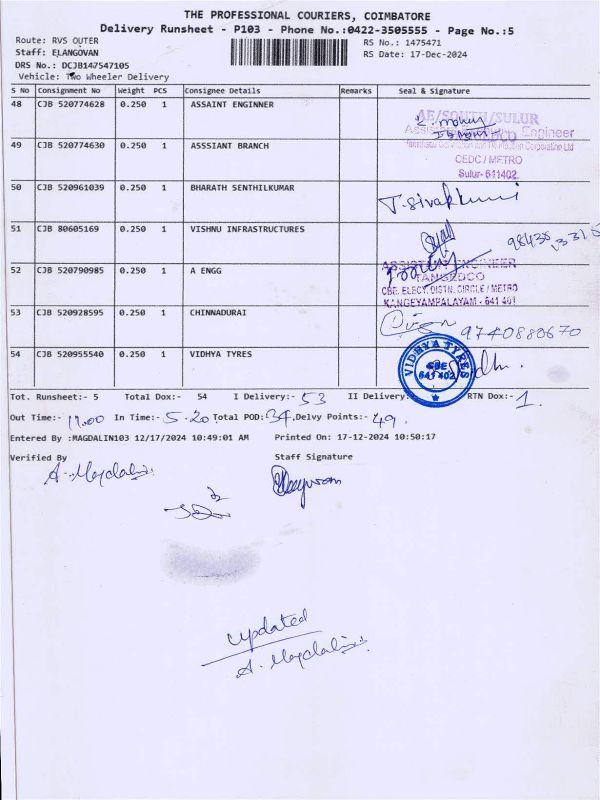 THE PROFESSIONAL COURIERS, COIMBATORE
Delivery Runsheet - P103 - Phone No.:0422-3505555 - Page No.:5
Route: RVS OUTER
RS No.: 1475471
Staff: ELANGOVAN
RS Date: 17-Dec-2024
DRS No.: DCJB147547105
Vehicle: Two Wheeler Delivery
S No Consignment No Weight PCS Consignee Details Remarks Seal & Signature
48 CJB 520774628 0.250 1 ASSAINT ENGINNER
AE/SOUTH/SULUR
49 CJB 520774630 0.250 1 ASSSIANT BRANCH
CEDC / METRO
Sulur- 641402
50 CJB 520961039 0.250 1 BHARATH SENTHILKUMAR T. Sivakkumi
51 CJB 80605169 0.250 1 VISHNU INFRASTRUCTURES
52 CJB 520790985 0.250 1 A ENGG
ASSISTANT ENGINEER
TANGEDCO
CBE. ELECY. DISTN. CIRCLE / METRO
KANGEYAMPALAYAM - 641 401
53 CJB 520928595 0.250 1 CHINNADURAI 9740880670
54 CJB 520955540 0.250 1 VIDHYA TYRES
VIDHYA TYRES
CBE
641 402
Tot. Runsheet:- 5 Total Dox:- 54 I Delivery:- 53 II Delivery: RTN Dox:- 1.
Out Time:- 11.00 In Time:- 5.20 Total POD: 34, Delvy Points:- 49.
Entered By :MAGDALIN103 12/17/2024 10:49:01 AM Printed On: 17-12-2024 10:50:17
Verified By Staff Signature
A. Magdalin
updated
A. Magdalin